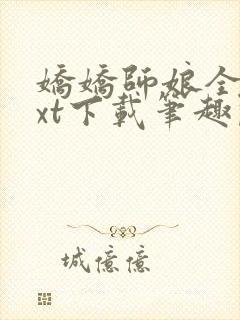 嬌嬌師娘全
xt下載筆趣
城億億